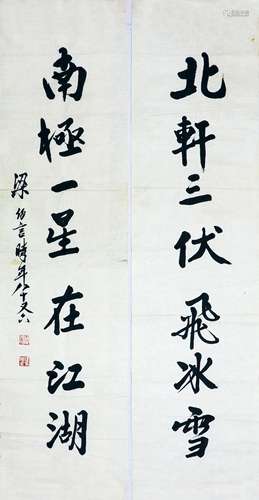 北軒三伏飛冰雪
南極一星在江湖
梁伯言時年八十又六